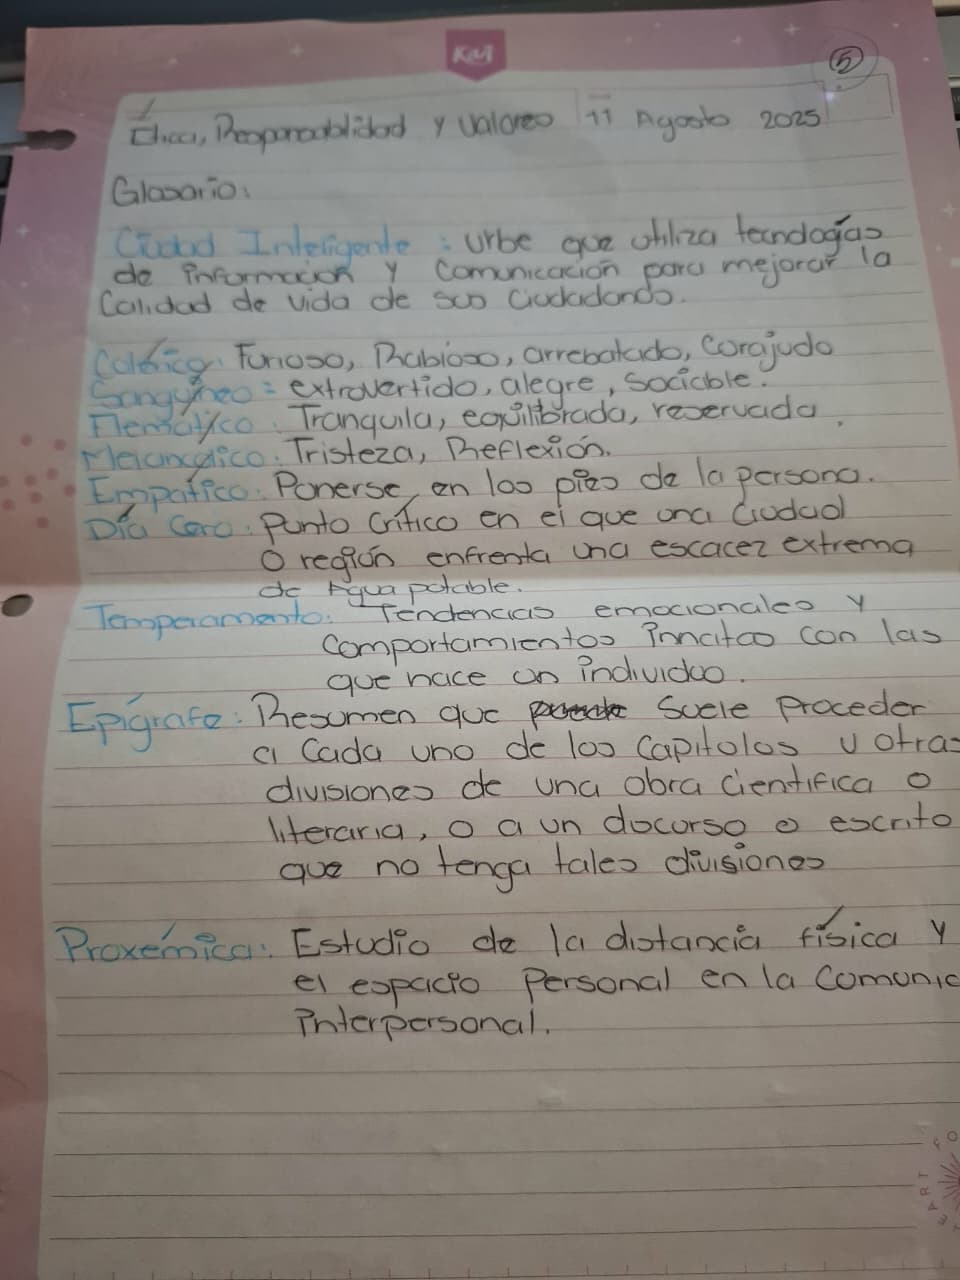 KM
5
Ética, Responsabilidad y Valores 11 Agosto 2025
Glosario:
Ciudad Inteligente: Urbe que utiliza tecnologías
de información y Comunicación para mejorar la
Calidad de vida de sus Ciudadanos.
Colérico: Furioso, Rabioso, arrebatado, Corajudo
Sanguíneo: extrovertido, alegre, sociable.
Flemático: Tranquila, equilibrada, reservada.
Melancólico: Tristeza, Reflexión.
Empático: Ponerse en los pies de la persona.
Día Cero: Punto Crítico en el que una Ciudad
O región enfrenta una escacez extrema
de Agua potable.
Temperamento: Tendencias emocionales y
Comportamientos innatos con las
que nace un individuo.
Epígrafe: Resumen que Suele Proceder
a Cada uno de los Capitolos u otras
divisiones de una obra Científica o
literaria, o a un discurso o escrito
que no tenga tales divisiones
Proxémica: Estudio de la distancia física y
el espacio Personal en la Comunic
interpersonal.